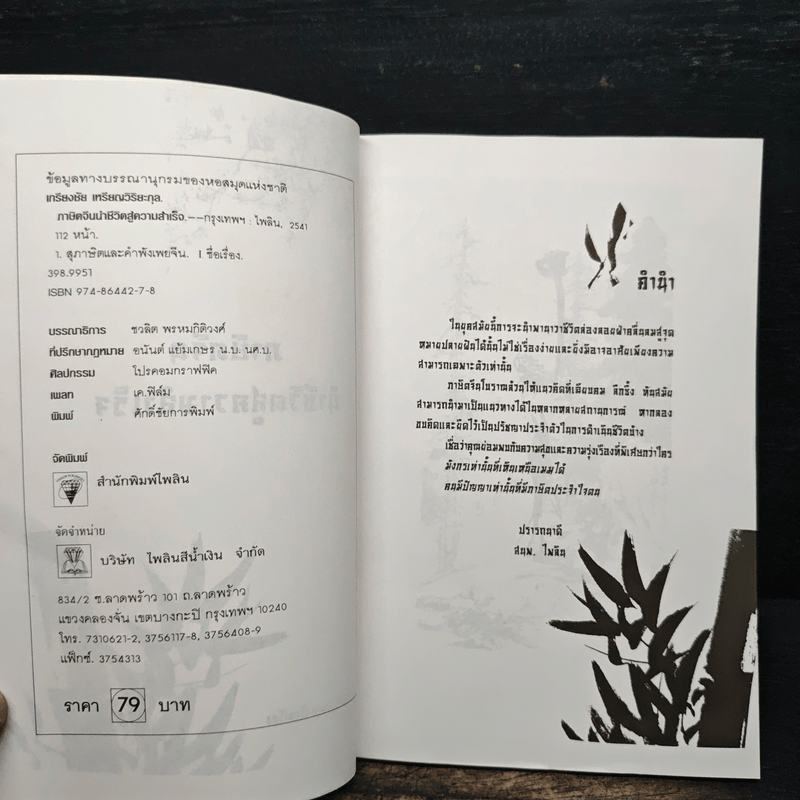 ข้อมูลทางบรรณานุกรมของหอสมุดแห่งชาติ
เกรียงชัย เหรียญวิริยะกุล.
ภาษิตจีนนำชีวิตสู่ความสำเร็จ.--กรุงเทพฯ : ไพลิน, 2541
112 หน้า.
1. สุภาษิตและคำพังเพยจีน. I. ชื่อเรื่อง.
398.9951
ISBN 974-86442-7-8
บรรณาธิการ ชวลิต พรหมกิติวงศ์
ที่ปรึกษากฎหมาย อนันต์ แย้มเกษร น.บ. นศ.บ.
ศิลปกรรม โปรคอมกราฟฟิค
เพลท เค.ฟิล์ม
พิมพ์ ศักดิ์ชัยการพิมพ์
จัดพิมพ์
สำนักพิมพ์ไพลิน
จัดจำหน่าย
บริษัท ไพลินสีน้ำเงิน จำกัด
834/2 ซ.ลาดพร้าว 101 ถ.ลาดพร้าว
แขวงคลองจั่น เขตบางกะปิ กรุงเทพฯ 10240
โทร. 7310621-2, 3756117-8, 3756408-9
แฟ็กซ์. 3754313
ราคา 79 บาท
คำนำ
ในยุคสมัยนี้การจะนำพานาวาชีวิตล่องลอยฝ่าคลื่นลมสู่จุด
หมายปลายฝันได้นั้นไม่ใช่เรื่องง่ายและยิ่งมิอาจอาศัยเพียงความ
สามารถเฉพาะตัวเท่านั้น
ภาษิตจีนโบราณล้วนให้แนวคิดที่เฉียบคม ลึกซึ้ง ทันสมัย
สามารถนำมาเป็นแนวทางได้ในหลากหลายสถานการณ์ หากลอง
ขบคิดและยึดไว้เป็นปรัชญาประจำตัวในการดำเนินชีวิตบ้าง
เชื่อว่าคุณย่อมพบกับความสุขและความรุ่งเรืองที่พิเศษกว่าใคร
มังกรเท่านั้นที่เหินเหนือเมฆได้
คนมีปัญญาเท่านั้นที่มีภาษิตประจำใจตน
ปรารถนาดี
สนพ. ไพลิน